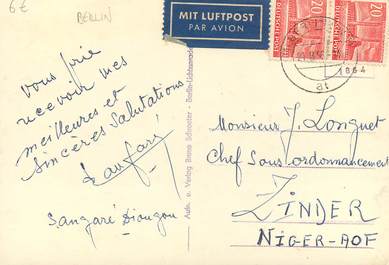 6€
BERLIN
MIT LUFTPOST
PAR AVION
20
20
DEUTSCHE POST
vous prie
recevoir mes
meilleures et
sincères salutations
Sangaré
Monsieur J. Longuet
Chef Sous ordonnancement
ZINDER
NIGER-AOF
Aufn. u. Verlag Bruno Schroeter - Berlin-Lichtenrade